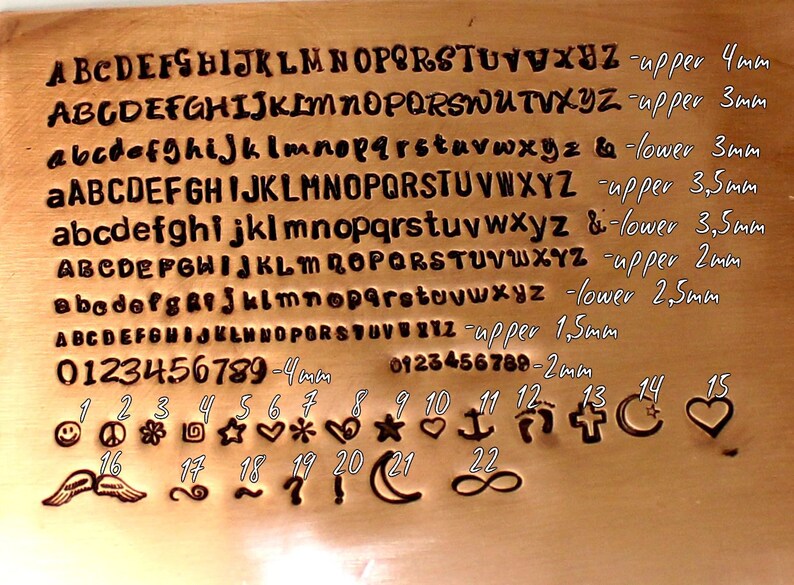 ABCDEFGHIJKLMNOPQRSTUVWXYZ -upper 4mm
ABCDEFGHIJKLMNOPQRSWUTVXYZ -upper 3mm
abcdefghijklmnopqrstuvwxyz & -lower 3mm
aABCDEFGHIJKLMNOPQRSTUVWXYZ -upper 3,5mm
abcdefghijklmnopqrstuvwxyz & -lower 3,5mm
ABCDEFGHIJKLMNOPQRSTUVWXYZ -upper 2mm
abcdefghijklmnopqrstuvwxyz -lower 2,5mm
ABCDEFGHIJKLMNOPQRSTUVWXYZ -upper 1,5mm
0123456789 -4mm 0123456789 -2mm
1 2 3 4 5 6 7 8 9 10 11 12 13 14 15
16 17 18 19 20 21 22
? !